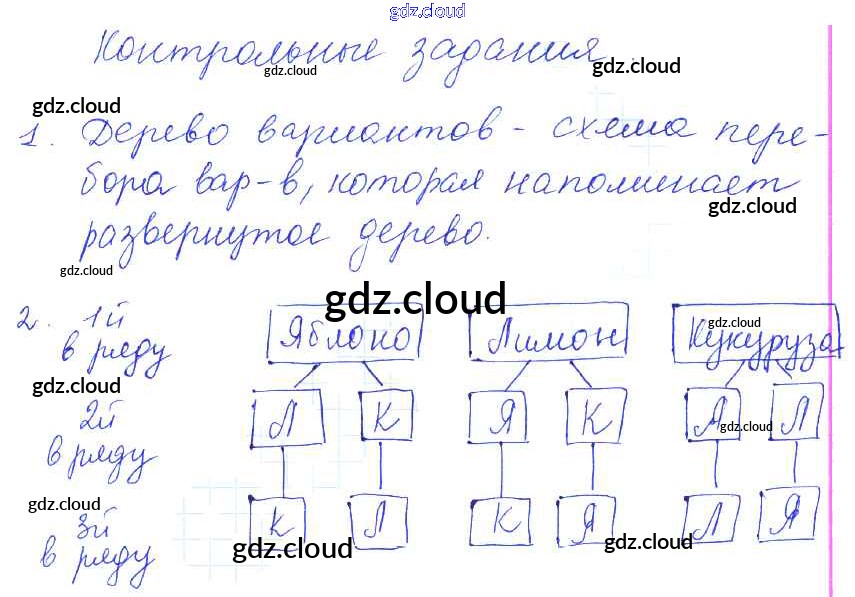 gdz.cloud
Контрольные задания
gdz.cloud gdz.cloud
gdz.cloud
1. Дерево вариантов - схема пере-
бора вар-в, которая напоминает
gdz.cloud
развернутое дерево.
gdz.cloud
gdz.cloud
2. 1й Яблоко Лимон Кукуруза
gdz.cloud
в ряду
gdz.cloud
2й Л К Я К Л
gdz.cloud
в ряду
gdz.cloud
3й К Л К Я Л Я
в ряду gdz.cloud gdz.cloud